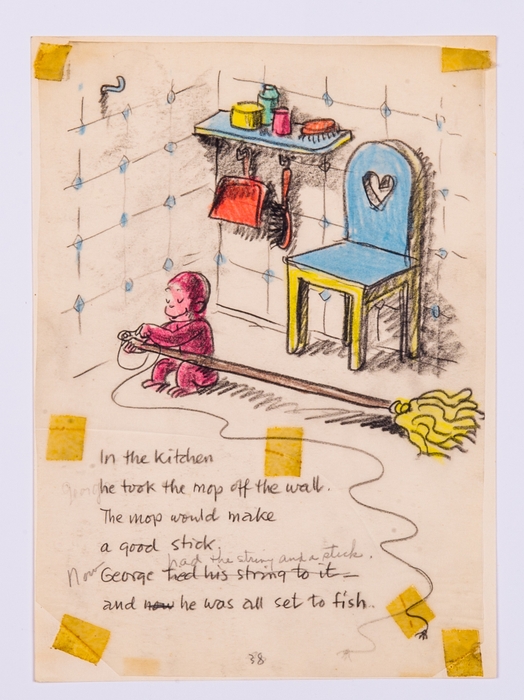 In the kitchen
George he took the mop off the wall.
The mop would make
a good stick.
had the string and a stick.
Now George tied his string to it –
and now he was all set to fish.
38